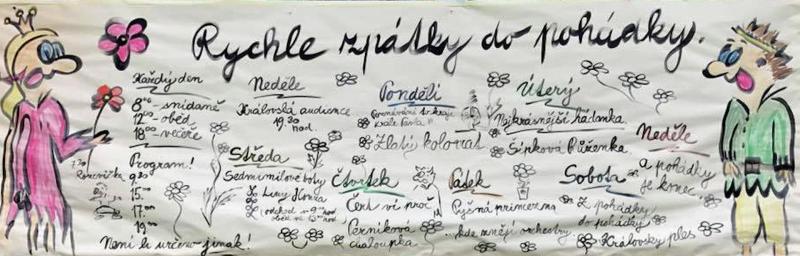 Rychle zpátky do pohádky.
Každý den
8⁰⁰ - snídaně
12⁰⁰ - oběd
18⁰⁰ - večeře
Program!
7.30
Rozcvička
9.30
15.00
17.00
19.00
Není li určeno jinak!
Neděle
Královská audience
19.30
hod.
Středa
Sedmimílové boty
Líný Honza
odchod v 9⁰⁰ hod
oběd
Pondělí
Zlatý kolovrat
Čtvrtek
Čert ví proč
Perníková
chaloupka
Úterý
Nejkrásnější hádanka
Šípková Růženka
Pátek
Pyšná princezna
...kde mnějí orchestry
Sobota
Z pohádky
do pohádky
Královský ples
Neděle
a pohádky
je konec